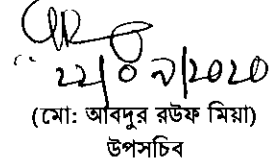 ২২/০৯/২০২০
(মো: আবদুর রউফ মিয়া)
উপসচিব